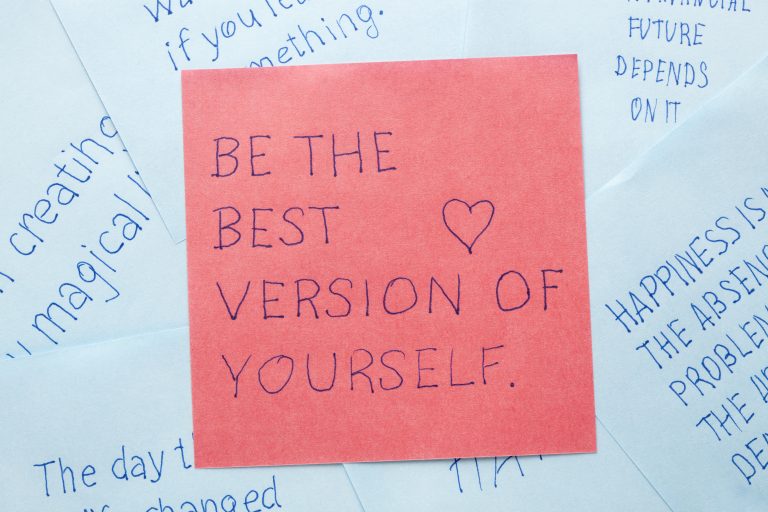 if you le
something.
FUTURE
DEPENDS
ON IT
creating
magical
BE THE
BEST
VERSION OF
YOURSELF.
HAPPINESS IS
THE
PROBLEM
THE
The day
changed